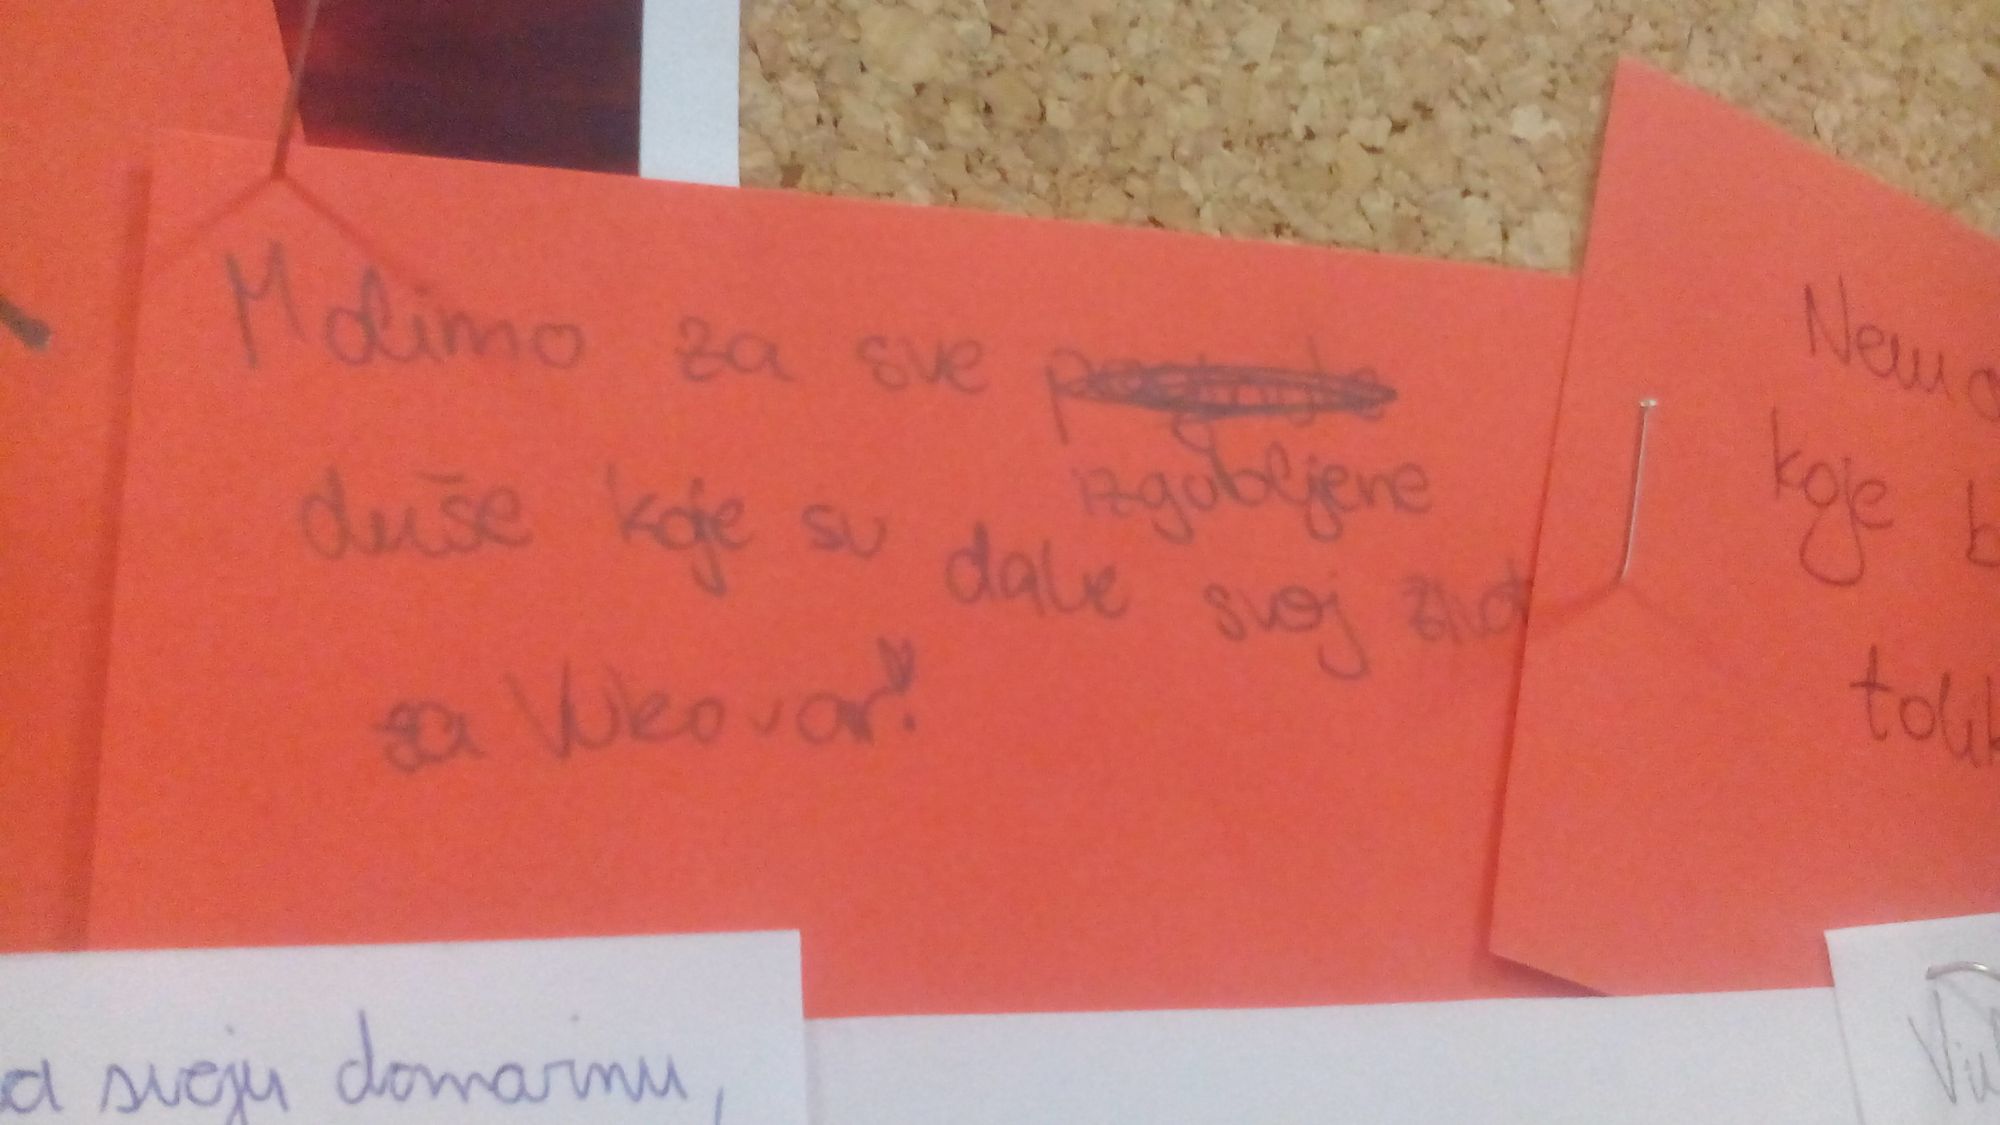 Molimo za sve
izgubljene
duše koje su dale svoj život
za Vukovar!
Nema
koje b
tolik
a svoju domovinu,
Vu